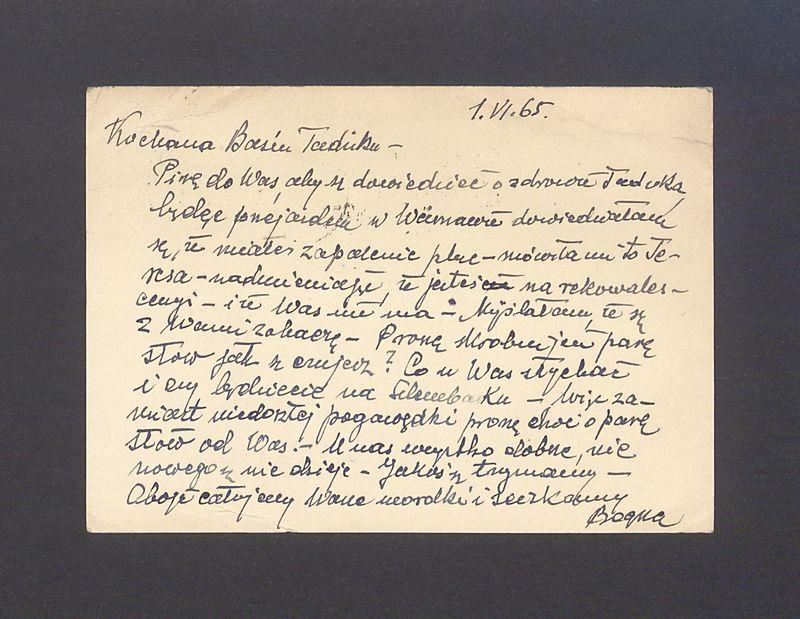 1.VI.65.
Kochana Basiu Tadziku –
Piszę do Was, aby się dowiedzieć o zdrowie Tadzika,
będąc przejazdem w Warszawie dowiedziałam
się, że miałeś zapalenie płuc – mówiła mi to Te-
resa – nadmieniając, że jesteś na rekonwales-
cencji – i że Was nie ma – Myślałam, że się
z Wami zobaczę – Proszę skrobnij parę
słów jak się czujesz? Co u Was słychać
i czy będziecie na – Więc za-
miast niedoszłej pogawędki proszę choć o parę
słów od Was. – U nas wszystko dobrze, nic
nowego się nie dzieje – Jakoś się trzymamy –
Oboje całujemy Wasze mordki i czekamy
Bogna